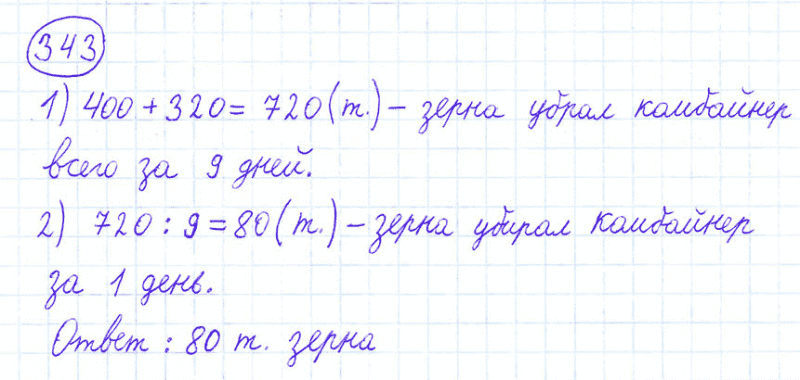 343
1) 400 + 320 = 720 (т.) – зерна убрал комбайнер
всего за 9 дней.
2) 720 : 9 = 80 (т.) – зерна убирал комбайнер
за 1 день.
Ответ : 80 т. зерна